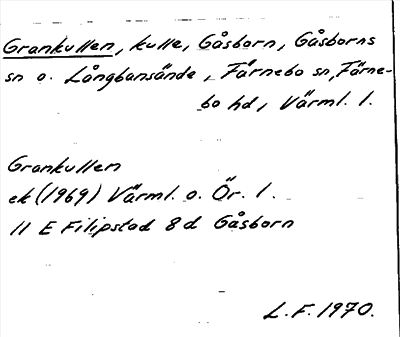 Grankullen, kulle, Gåsborn, Gåsborns
sn o. Långbansände, Färnebo sn, Färne-
bo hd, Värml. l.
Grankullen
ek (1969) Värml. o. Ör. l.
11 E Filipstad 8d Gåsborn
L.F. 1970.